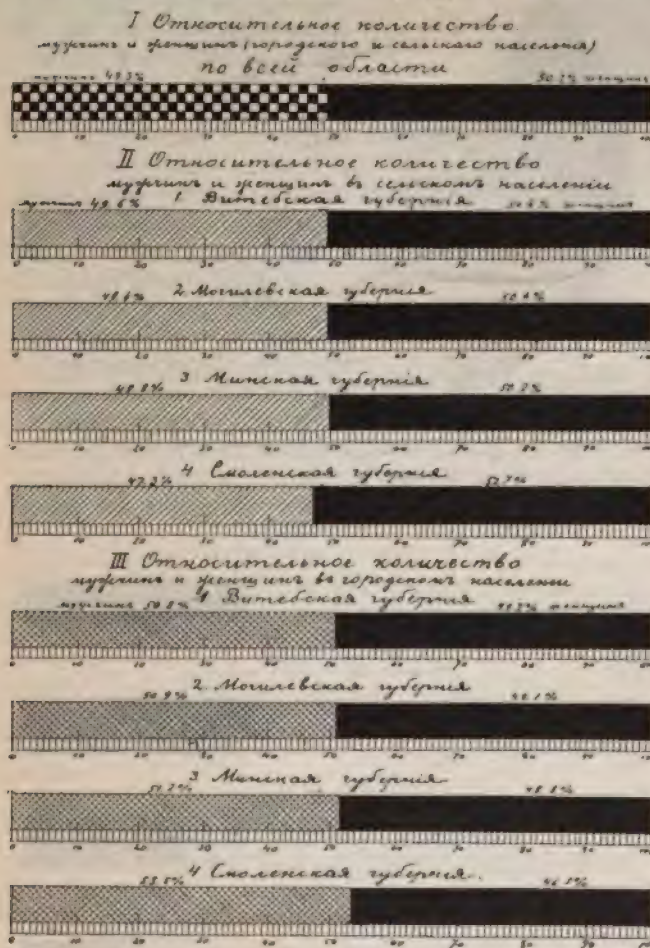 I Относительное количество
мужчинъ и женщинъ (городского и сельскаго населенія)
по всей области
мужчинъ 49.3% 50.7% женщинъ
0 10 20 30 40 50 60 70 80 90 100
II Относительное количество
мужчинъ и женщинъ въ сельскомъ населеніи
1 Витебская губернія
мужчинъ 49.6% 50.4% женщинъ
0 10 20 30 40 50 60 70 80 90 100
2 Могилевская губернія
50.4%
0 10 20 30 40 50 60 70 80 90 100
3 Минская губернія
50.2%
0 10 20 30 40 50 60 70 80 90 100
4 Смоленская губернія
47.3% 52.7%
0 10 20 30 40 50 60 70 80 90 100
III Относительное количество
мужчинъ и женщинъ въ городскомъ населеніи
1 Витебская губернія
мужчинъ 50.8% 49.2% женщинъ
0 10 20 30 40 50 60 70 80 90 100
2 Могилевская губернія
50,9%
0 10 20 30 40 50 60 70 80 90 100
3 Минская губернія
51.2% 48.8%
0 10 20 30 40 50 60 70 80 90 100
4 Смоленская губернія.
53.5% 46.5%
0 10 20 30 40 50 60 70 80 90 100